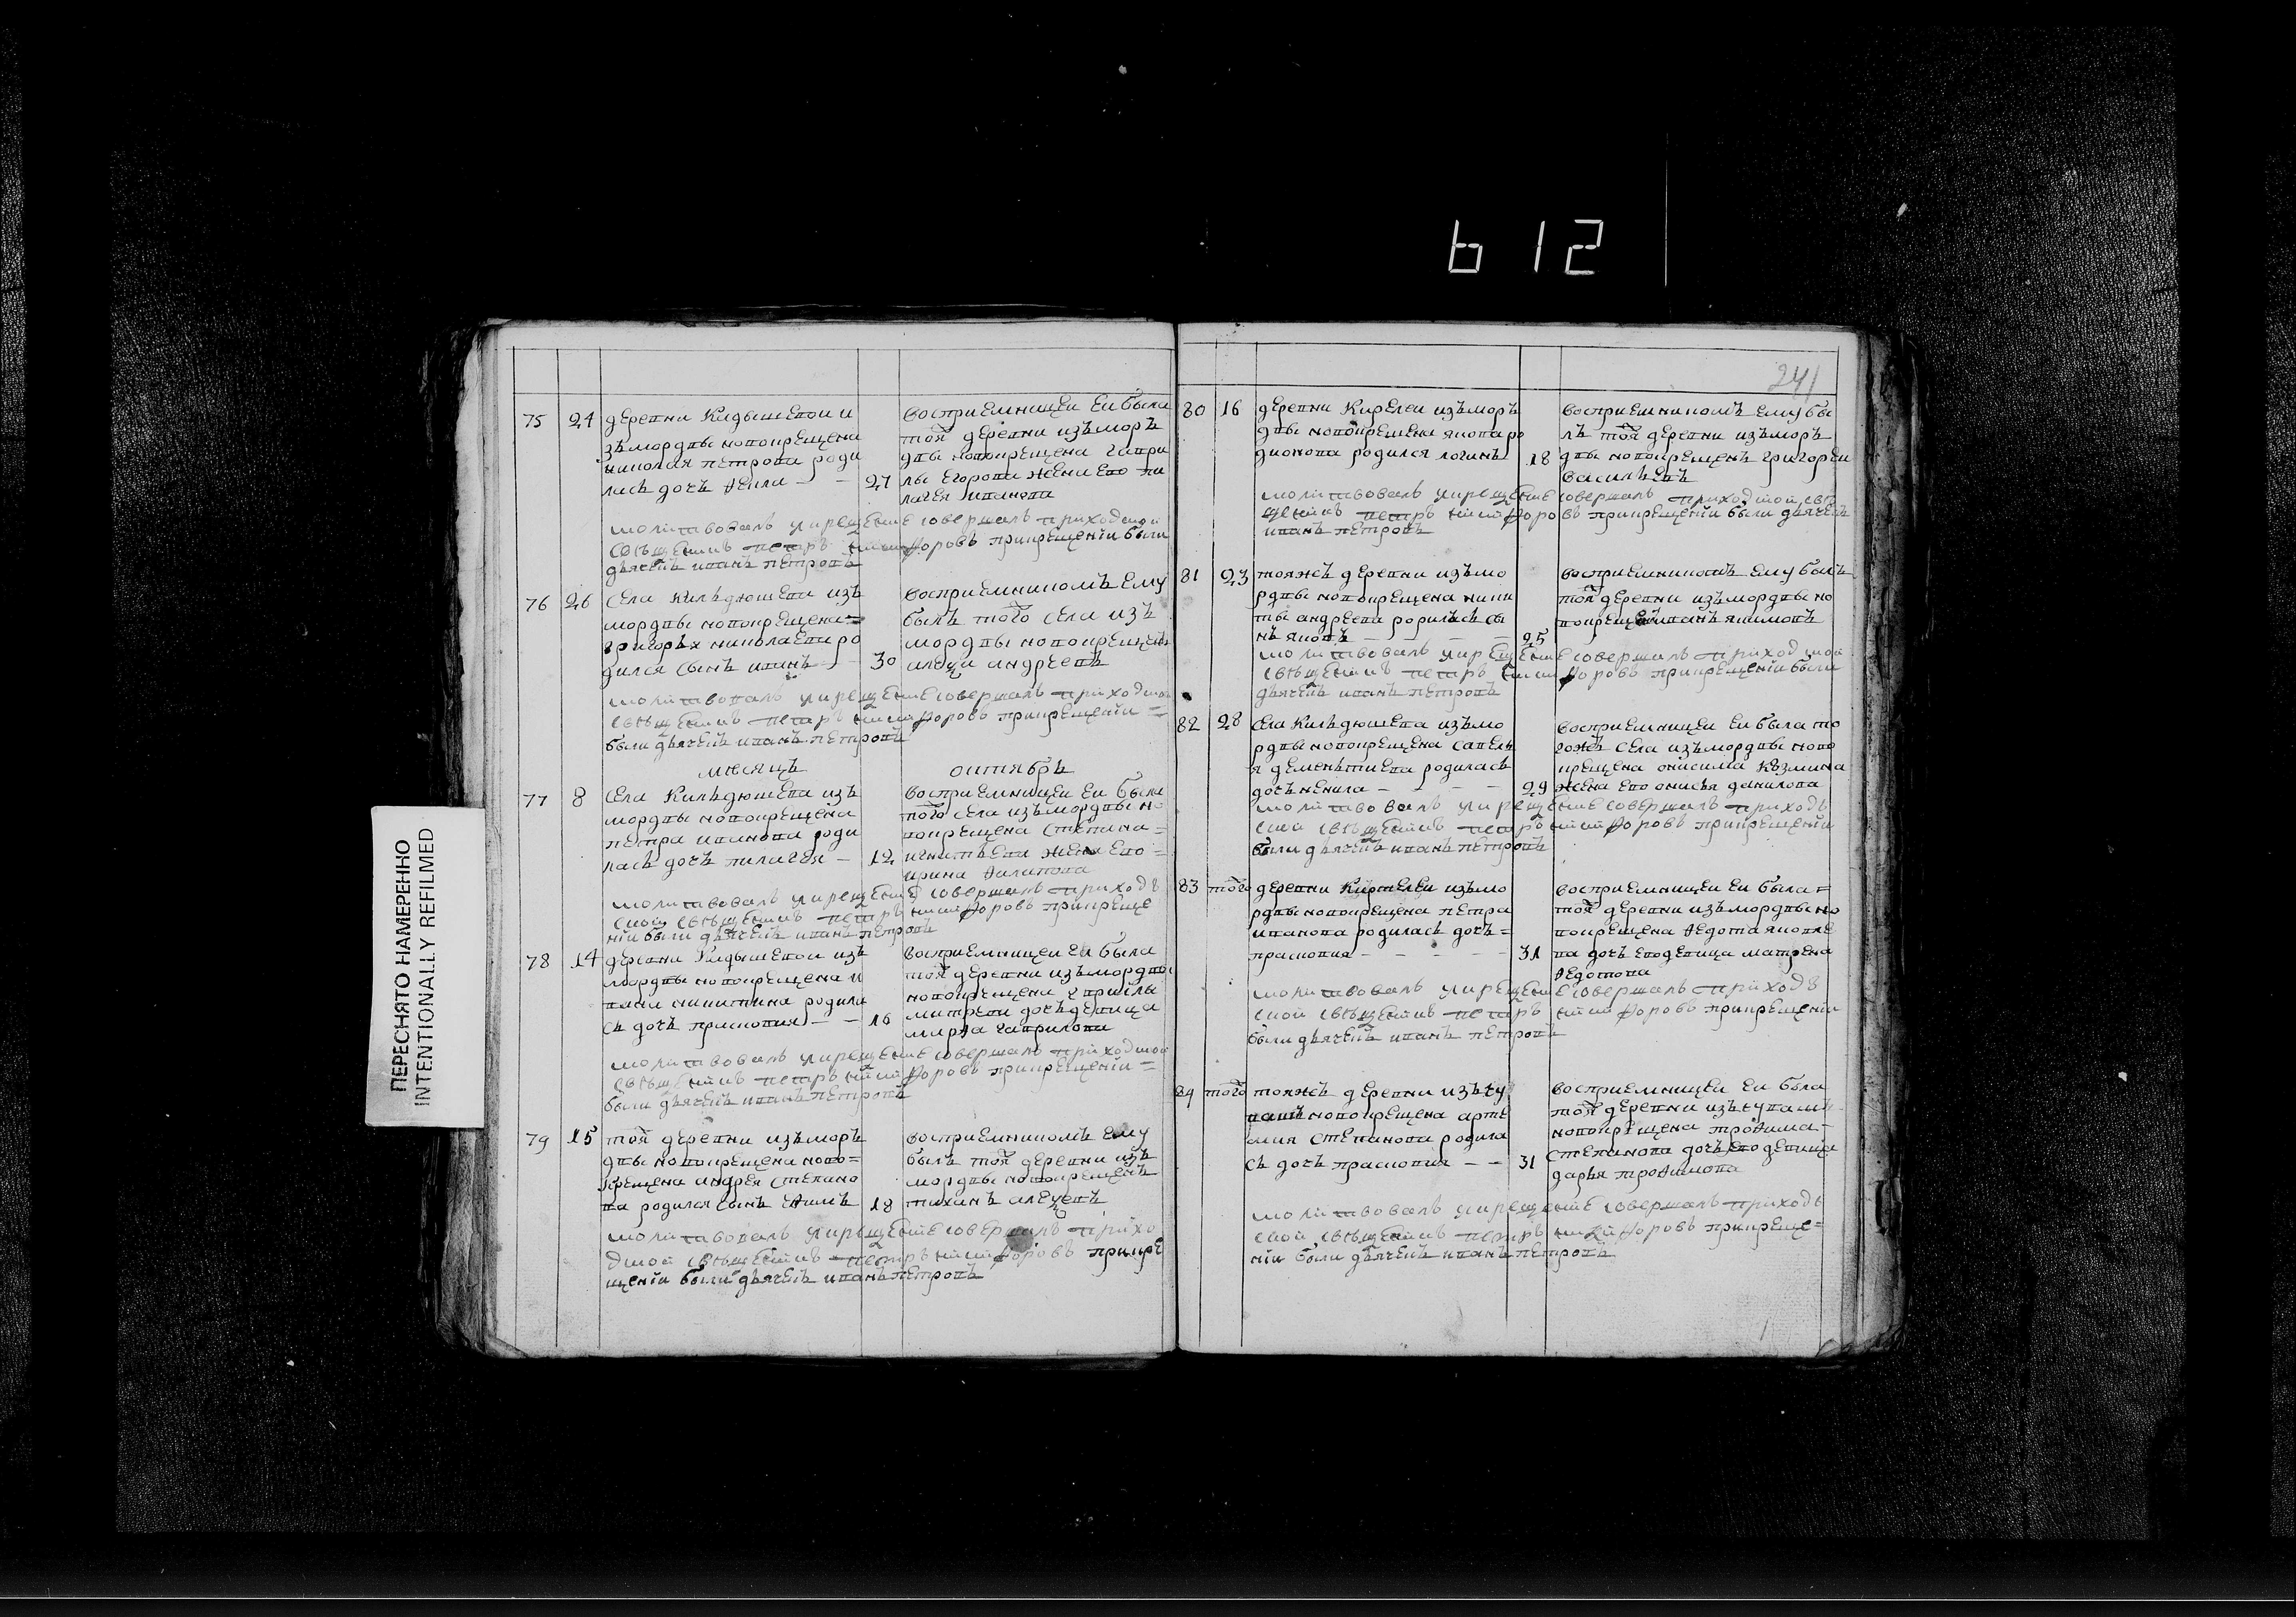 612
ПЕРЕСНЯТО НАМЕРЕННО
INTENTIONALLY REFILMED
241
75 24 деревни Кидышевои и
зъ мордвы новокрещена
николая петрова роди
лась дочь Фекла 27
восприемницеи еи была
тоя деревни изъ морд
двы новокрещена гаври
лы егорова жена ево па
лагея иванова
молитвовалъ и крещение совершалъ приходской
священникъ петръ никифоровъ при крещении были
дьячекъ иванъ петровъ
76 26 села Кильдюшева изъ
мордвы новокрещена
григорья николаева ро
дился сынъ иванъ 30
восприемникомъ ему
былъ того села изъ
мордвы новокрещенъ
алеѯи андреевъ
молитвовалъ и крещение совершалъ приходской
священникъ петръ никифоровъ при крещении
были дьячекъ иванъ петровъ
месяцъ октябрь
77 8 села Кильдюшева изъ
мордвы новокрещена
петра иванова роди
лась дочь пилагея 12
восприемницеи еи была
того села изъ мордвы но
вокрещена степана
игнатьева жена ево
ирина
молитвовалъ и крещение совершалъ приход
скои священникъ петръ никифоровъ при креще
нии были дьячекъ иванъ петровъ
78 14 деревни Кидышевои изъ
мордвы новокрещена и
вана никитина родила
сь дочь прасковия 16
восприемницеи еи была
тоя деревни изъ мордвы
новокрещена гаврилы
дочь девица
марѳа гаврилова
молитвовалъ и крещение совершалъ приходской
священникъ петръ никифоровъ при крещении
были дьячекъ иванъ петровъ
79 15 тоя деревни изъ моръ
двы новокрещена ново
крещена андрея степано
ва родился сынъ 18
восприемникомъ ему
былъ тоя деревни изъ
мордвы новокрещенъ
тиханъ алеѯевъ
молитвовалъ и крещение совершалъ прихо
дской священникъ петръ никифоровъ при кре
щении были дьячекъ иванъ петровъ
80 16 деревни Кирелеи изъ моръ
двы новокрещена якова ро
дионова родился логинъ 18
восприемникомъ ему бы
лъ тоя деревни изъ моръ
двы новокрещенъ григореи
васильевъ
молитвовалъ и крещение совершалъ приходской свя
щенникъ петръ никифоровъ при крещении были дьячекъ
иванъ петровъ
81 23 тояжъ деревни изъ мо
рдвы новокрещена ники
ты андреева родилъсь сы
нъ яковъ 25
восприемникомъ ему былъ
тоя деревни изъ мордвы но
вокрещенъ иванъ якимовъ
молитвовалъ и крещение совершалъ приходской
священникъ петръ никифоровъ при крещении были
дьячекъ иванъ петровъ
82 28 села Кильдюшева изъ мо
рдвы новокрещена савель
я дементиева родилась
дочь ненила 29
восприемницеи еи была то
гожъ села изъ мордвы ново
крещена онисима козмина
жена ево онисья данилова
молитвовалъ и крещение совершалъ приходъ
скои священникъ петръ никифоровъ при крещении
были дьячекъ иванъ петровъ
83 того деревни Кирелеи изъ мо
рдвы новокрещена петра
иванова родилась дочь
прасковия 31
восприемницеи еи была
тоя деревни изъ мордвы но
вокрещена Федота яковле
ва дочь ево девица матрена
Федотова
молитвовалъ и крещение совершалъ приход
скои священникъ петръ никифоровъ при крещении
были дьячекъ иванъ петровъ
84 того тояжъ деревни изъ чу
вашъ новокрещена арте
мия степанова родила
сь дочь прасковия 31
восприемницеи еи была
тоя деревни изъ чувашъ
новокрещена трофима
степанова дочь ево девица
дарья трофимова
молитвовалъ и крещение совершалъ приходъ
скои священникъ петръ никифоровъ при креще
нии были дьячекъ иванъ петровъ